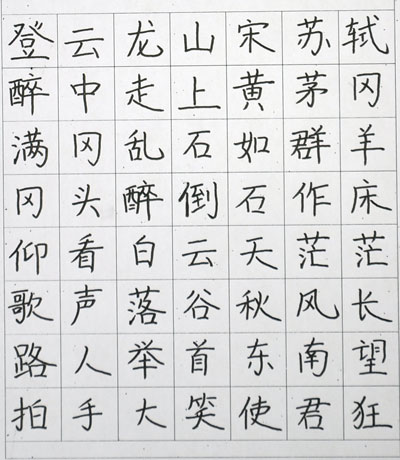 登云龙山宋苏轼
醉中走上黄茅冈
满冈乱石如群羊
冈头醉倒石作床
仰看白云天茫茫
歌声落谷秋风长
路人举首东南望
拍手大笑使君狂